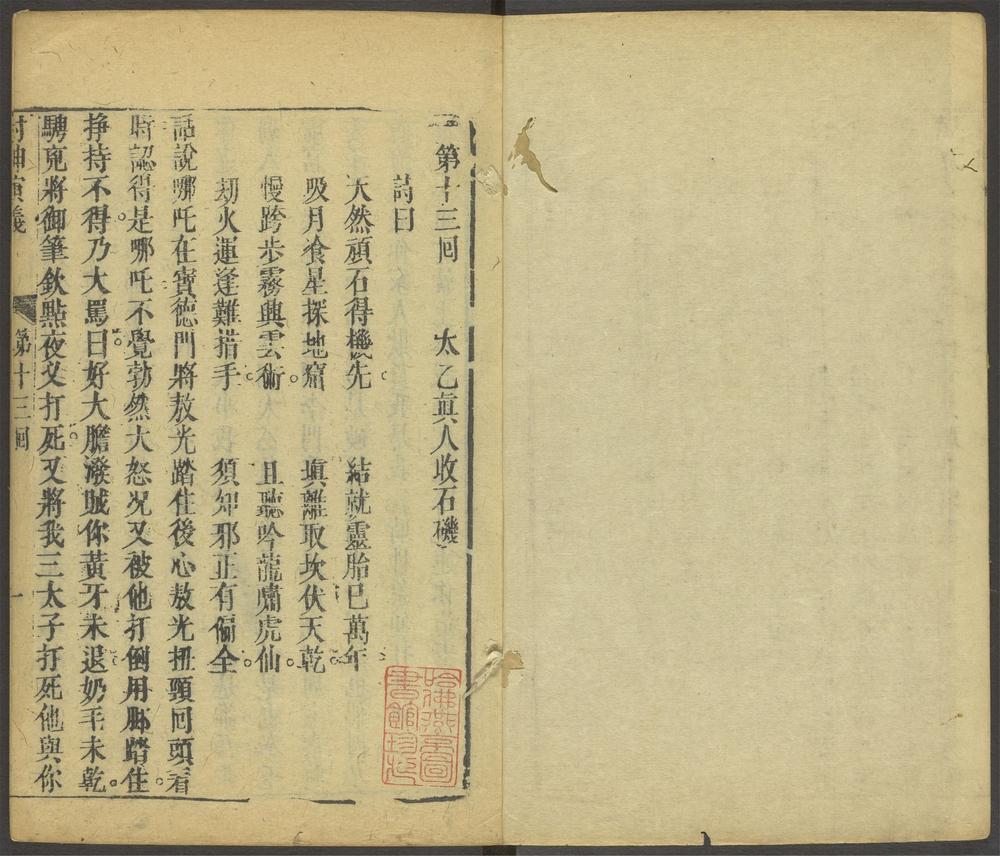 第十三回　太乙真人收石磯
詩曰
天然頑石得機先。　結就靈胎已萬年。
吸月食星探地窟　填離取坎伏天乾。
慢跨步霧興雲術。　且聽吟龍嘯虎仙。
劫火運逢難措手。　須知邪正有偏全。
話說哪吒在寶德門將敖光踏住後心敖光扭頸回頭看
時認得是哪吒不覺勃然大怒况又被他打倒用脚踏住。
掙持不得。乃大罵曰。好大膽潑賊你黃牙未退奶毛未乾。
騁兇將御筆欽點夜叉打死。又將我三太子打死他與你
封神演義　第十三回　一
哈佛燕京圖書館珍藏